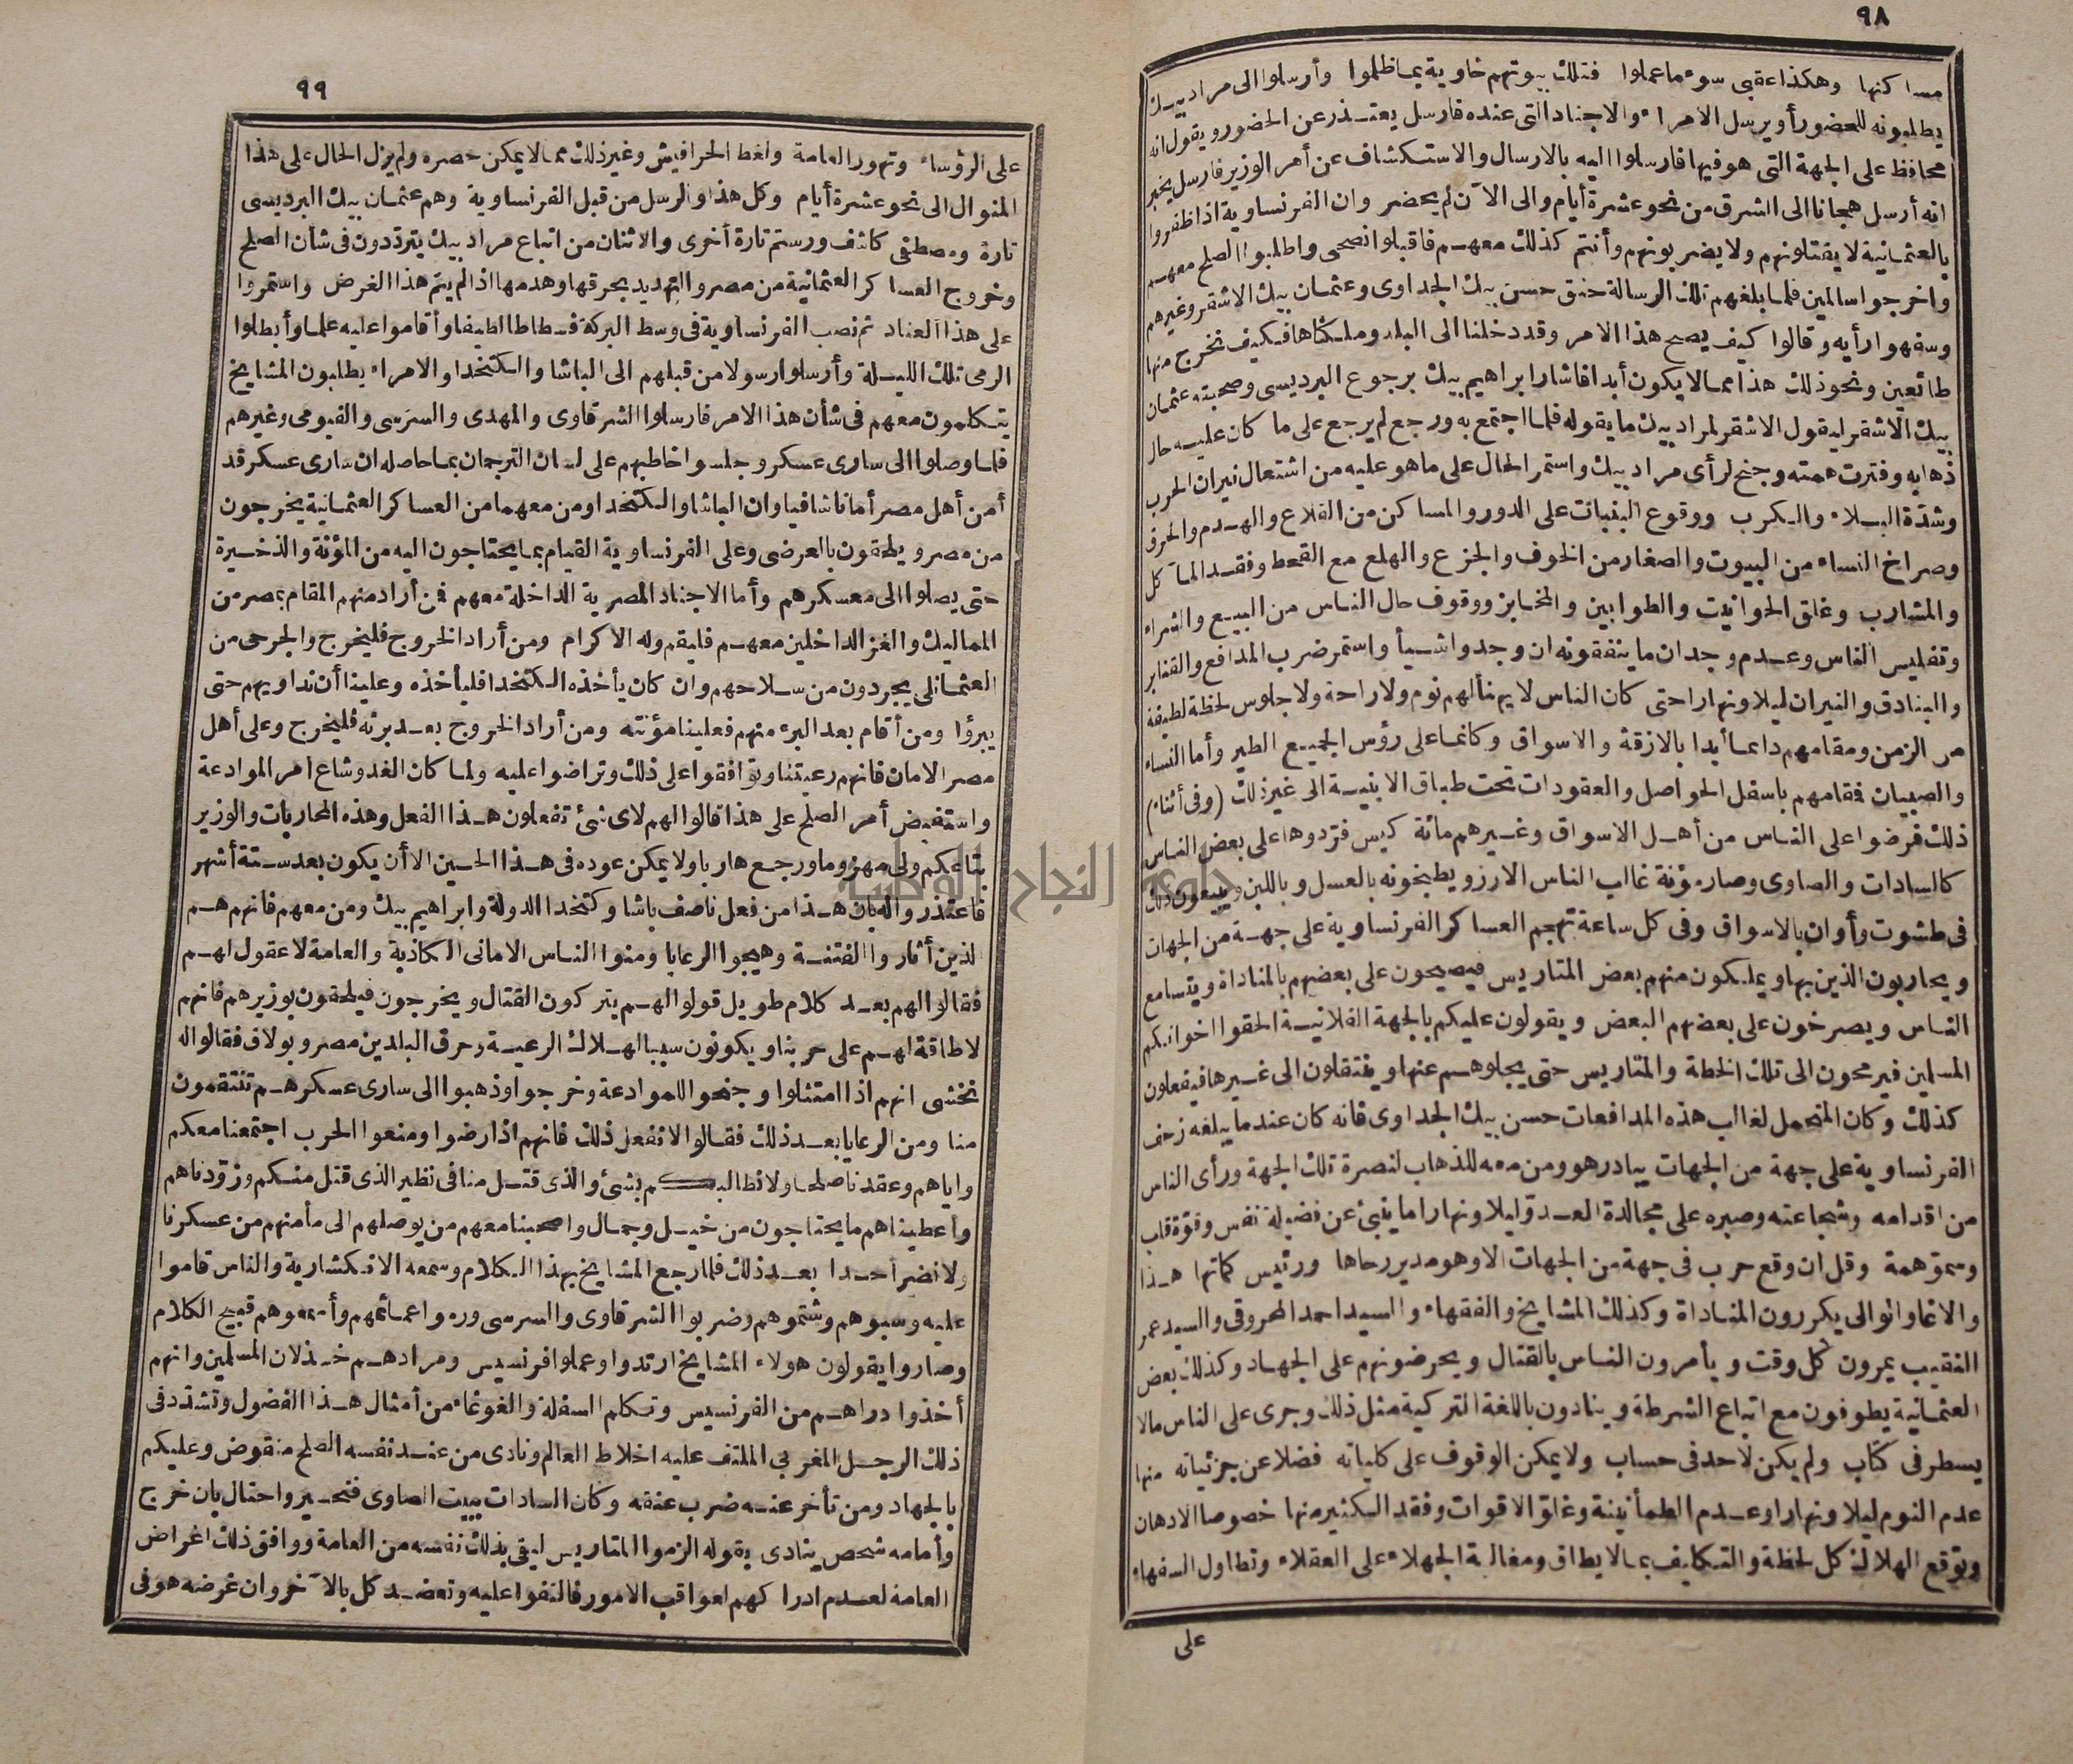 ٩٨
مساكنها وهكذا عقبى سوء ما عملوا فتلك بيوتهم خاوية بما ظلموا وأرسلوا الى مراد بيك
يطلبونه للحضور أو يرسل الامراء والاجناد التى عنده فارسل يعتذر عن الحضور ويقول انه
محافظ على الجهة التى هو فيها فارسلوا اليه بالارسال والاستكشاف عن أمر الوزير فارسل يخبر
انه أرسل هجانا الى الشرق من نحو عشرة أيام والى الآن لم يحضر وان الفرنساوية اذا ظفروا
بالعثمانية لا يقتلونهم ولا يضربونهم وأنتم كذلك معهم فاقبلوا نصحى واطلبوا الصلح معهم
واخرجوا سالمين فلما بلغهم تلك الرسالة حنق حسن بيك الجداوى وعثمان بيك الاشقر وغيرهم
وسفهوا رأيه وقالوا كيف يصح هذا الامر وقد دخلنا الى البلد وملكناها فكيف نخرج منها
طائعين ونحو ذلك هذا مما لا يكون أبدا فاشار ابراهيم بيك برجوع البرديسى وصحبته عثمان
بيك الاشقر ليقول الاشقر لمراد بيك ما يقوله فلما اجتمع به ورجع لم يرجع على ما كان عليه حال
ذهابه وفترت همته وجنح لرأى مراد بيك واستمر الحال على ما هو عليه من اشتعال نيران الحرب
وشدّة البلاء والكرب ووقوع البنبات على الدور والمساكن من القلاع والهدم والحرق
وصراخ النساء من البيوت والصغار من الخوف والجزع والهلع مع القحط وفقد المآكل
والمشارب وغلق الحوانيت والطوابين والمخابز ووقوف حال الناس من البيع والشراء
وتفليس الناس وعدم وجدان ما ينفقونه ان وجدوا شيأ واستمر ضرب المدافع والقنابر
والبنادق والنيران ليلا ونهارا حتى كان الناس لا يهنأ لهم نوم ولا راحة ولا جلوس لحظة لطيفة
من الزمن ومقامهم دائما أبدا بالازقة والاسواق وكانما على رؤس الجميع الطير وأما النساء
والصبيان فمقامهم باسفل الحواصل والعقودات تحت طباق الابنية الى غير ذلك (وفى أثناء)
ذلك فرضوا على الناس من أهل الاسواق وغيرهم مائة كيس فردوها على بعض الناس
كالسادات والصاوى وصار مؤنة غالب الناس الارز ويطبخونه بالعسل وباللبن ويبيعون ذلك
فى طشوت وأوان بالاسواق وفى كل ساعة تهجم العساكر الفرنساوية على جهة من الجهات
ويحاربون الذين بها ويملكون منهم بعض المتاريس فيصيحون على بعضهم بالمناداة ويتسامع
الناس ويصرخون على بعضهم البعض ويقولون عليكم بالجهة الفلانية الحقوا اخوانكم
المسلمين فيرمحون الى تلك الخطة والمتاريس حتى يجلوهم عنها وينتقلون الى غيرها فيفعلون
كذلك وكان المتحمل لغالب هذه المدافعات حسن بيك الجداوى فانه كان عندما يبلغه زحف
الفرنساوية على جهة من الجهات يبادر هو ومن معه للذهاب لنصرة تلك الجهة ورأى الناس
من اقدامه وشجاعته وصبره على مجالدة العدوّ ليلا ونهارا ما ينبئ عن فضيلة نفس وقوّة قلب
وسموّ همة وقل ان وقع حرب فى جهة من الجهات الا وهو مدير رحاها ورئيس كماتها هذا
والاغا والوالى يكررون المناداة وكذلك المشايخ والفقهاء والسيد احمد المحروقى والسيد عمر
النقيب يمرون كل وقت ويأمرون الناس بالقتال ويحرضونهم على الجهاد وكذلك بعض
العثمانية يطوفون مع اتباع الشرطة وينادون باللغة التركية مثل ذلك وجرى على الناس مالا
يسطر فى كتاب ولم يكن لاحد فى حساب ولا يمكن الوقوف على كلياته فضلا عن جزئياته منها
عدم النوم ليلا ونهارا وعدم الطمأنينة وغلوّ الاقوات وفقد الكثير منها خصوصا الادهان
وتوقع الهلاك كل لحظة والتكليف بما لا يطاق ومغالبة الجهلاء على العقلاء وتطاول السفهاء
على
٩٩
على الرؤساء وتهور العامة ولغط الحرافيش وغير ذلك مما لا يمكن حصره ولم يزل الحال على هذا
المنوال الى نحو عشرة أيام وكل هذا والرسل من قبل الفرنساوية وهم عثمان بيك البرديسى
تارة ومصطفى كاشف ورستم تارة أخرى والاثنان من اتباع مراد بيك يتردّدون فى شأن الصلح
وخروج العساكر العثمانية من مصر والتهديد بحرقها وهدمها اذا لم يتم هذا الغرض واستمروا
على هذا العناد ثم نصب الفرنساوية فى وسط البركة فسطاطا لطيفا وأقاموا عليه علما وأبطلوا
الرمى تلك الليلة وأرسلوا رسولا من قبلهم الى الباشا والكتخدا والامراء يطلبون المشايخ
يتكلمون معهم فى شأن هذا الامر فارسلوا الشرقاوى والمهدى والسرسى والفيومى وغيرهم
فلما وصلوا الى سارى عسكر وجلسوا خاطبهم على لسان الترجمان بما حاصله ان سارى عسكر قد
أمن أهل مصر أمانا شافيا وان الباشا والكتخدا ومن معهما من العساكر العثمانية يخرجون
من مصر ويلحقون بالعرضى وعلى الفرنساوية القيام بما يحتاجون اليه من المؤنة والذخيرة
حتى يصلوا الى معسكرهم وأما الاجناد المصرية الداخلة معهم فمن أراد منهم المقام بمصر من
المماليك والغز الداخلين معهم فليقم وله الاكرام ومن أراد الخروج فليخرج والجرحى من
العثمانلى يجردون من سلاحهم وان كان يأخذه الكتخدا فليأخذه وعلينا أن نداويهم حتى
يبرؤا ومن أقام بعد البرء منهم فعلينا مؤنته ومن أراد الخروج بعد برئه فليخرج وعلى أهل
مصر الامان فانهم رعيتنا وتوافقوا على ذلك وتراضوا عليه ولما كان الغد وشاع امر الموادعة
واستفيض أمر الصلح على هذا قالوا لهم لاى شئ تفعلون هذا الفعل وهذه المحاربات والوزير
بتاعكم ولى مهزوما ورجع هاربا ولا يمكن عوده فى هذا الحين الا أن يكون بعد ستة أشهر
فاعتذروا له بان هذا من فعل ناصف باشا وكتخدا الدولة وابراهيم بيك ومن معهم فانهم هم
الذين أثاروا الفتنة وهيجوا الرعايا ومنوا الناس الامانى الكاذبة والعامة لا عقول لهم
فقالوا لهم بعد كلام طويل قولوا لهم يتركون القتال ويخرجون فيلحقون بوزيرهم فانهم
لا طاقة لهم على حربنا ويكونون سببا لهلاك الرعية وحرق البلدين مصر وبولاق فقالوا له
نخشى انهم اذا امتثلوا وجنحوا للموادعة وخرجوا وذهبوا الى سارى عسكرهم تنتقمون
منا ومن الرعايا بعد ذلك فقالوا لا نفعل ذلك فانهم اذا رضوا ومنعوا الحرب اجتمعنا معكم
واياهم وعقدنا صلحا ولا نطالبكم بشئ والذى قتل منا فى نظير الذى قتل منكم وزوّدناهم
وأعطيناهم ما يحتاجون من خيل وجمال واصحبنا معهم من يوصلهم الى مأمنهم من عسكرنا
ولا نضر أحدا بعد ذلك فلما رجع المشايخ بهذا الكلام وسمعه الانكشارية والناس قاموا
عليه وسبوهم وشتموهم وضربوا الشرقاوى والسرسى ورموا عمائمهم وأسمعوهم قبيح الكلام
وصاروا يقولون هولاء المشايخ ارتدوا وعملوا فرنسيس ومرادهم خذلان المسلمين وانهم
أخذوا دراهم من الفرنسيس وتكلم السفلة والغوغاء من أمثال هذا الفضول وتشدد فى
ذلك الرجل المغربي الملتف عليه اخلاط العالم ونادى من عند نفسه الصلح منقوض وعليكم
بالجهاد ومن تأخر عنه ضرب عنقه وكان السادات ببيت الصاوى فتحير واحتال بان خرج
وأمامه شخص ينادى بقوله الزموا المتاريس ليقى بذلك نفسه من العامة ووافق ذلك اغراض
العامة لعدم ادراكهم لعواقب الامور فالتفوا عليه وتعضد كل بالآخر وان غرضه هو فى
جامعة النجاح الوطنية